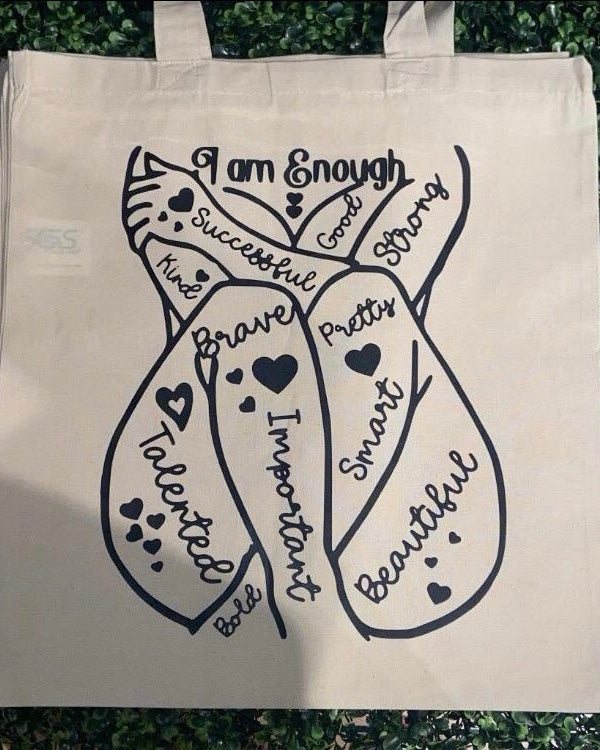 I am Enough
Good
Strong
Successful
Kind
Brave
Pretty
Important
Smart
Talented
Beautiful
Bold